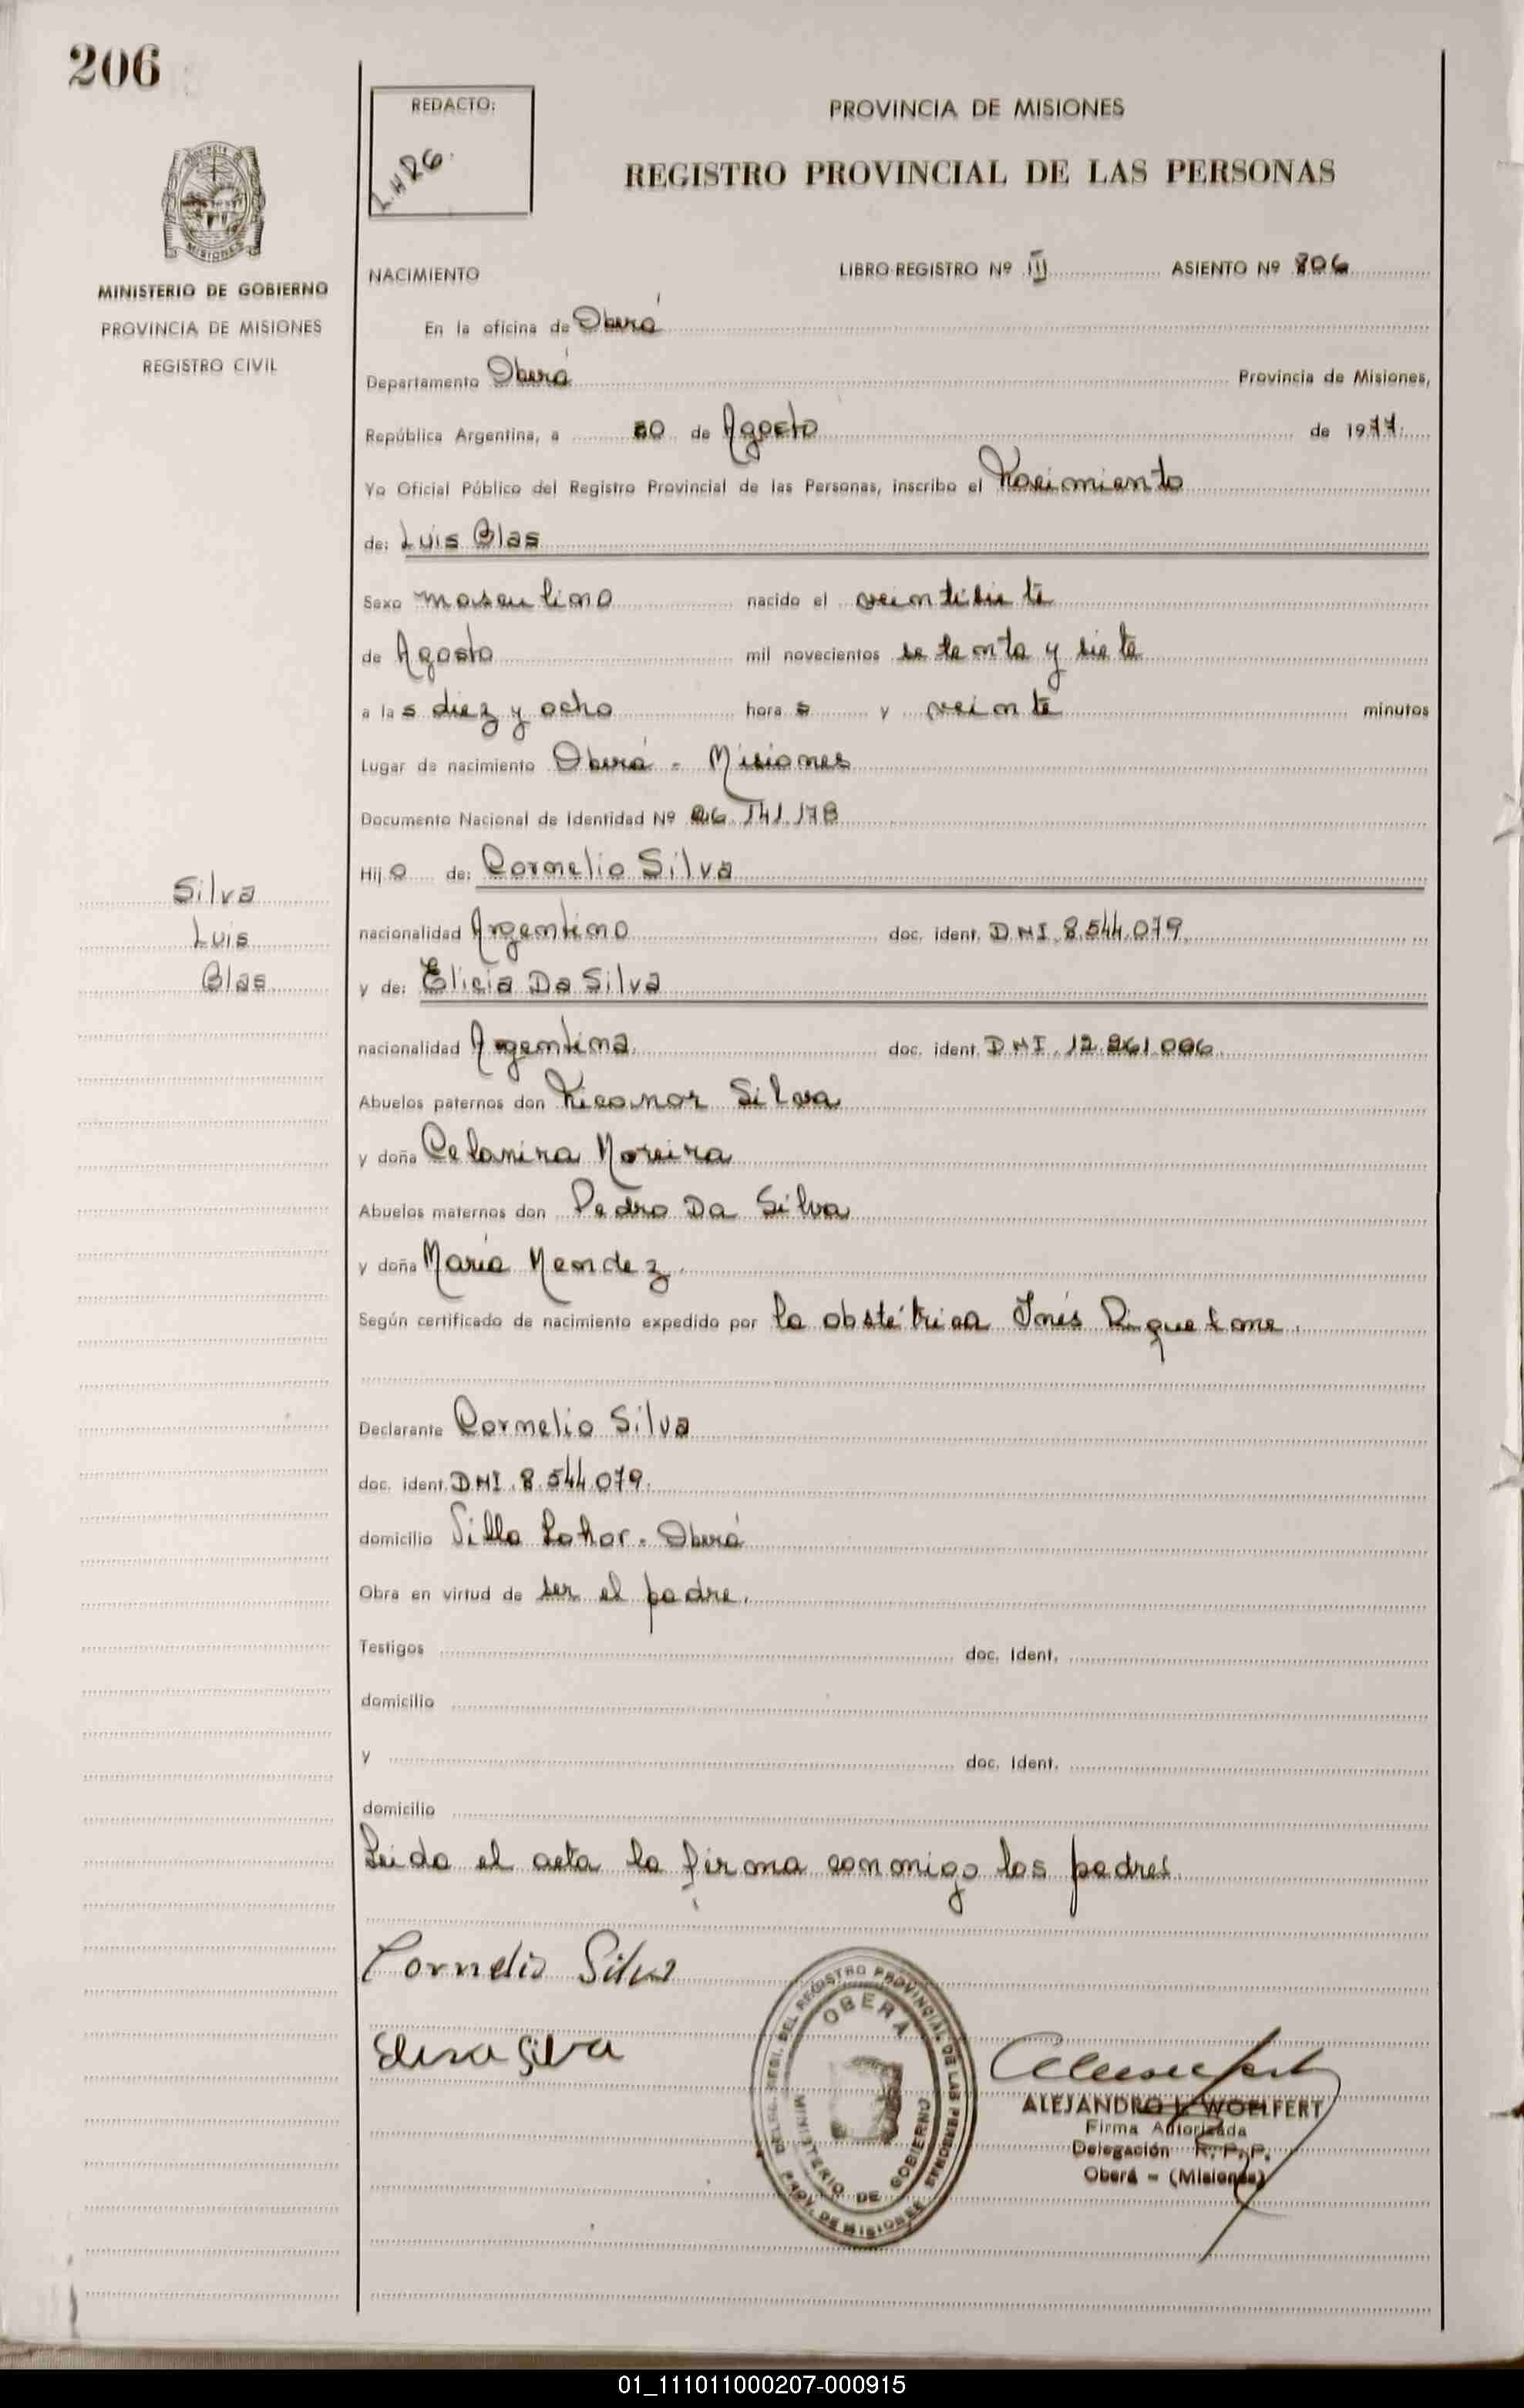 206
REDACTO:
PROVINCIA DE MISIONES
REGISTRO PROVINCIAL DE LAS PERSONAS
PROVINCIA DE
MISIONES
MINISTERIO DE GOBIERNO
PROVINCIA DE MISIONES
REGISTRO CIVIL
NACIMIENTO LIBRO-REGISTRO Nº III ASIENTO Nº 806
En la oficina de Oberá
Departamento Oberá Provincia de Misiones,
República Argentina, a 30 de Agosto de 1977.
Yo Oficial Público del Registro Provincial de las Personas, inscribo el Nacimiento
de: Luis Blas
Sexo masculino nacido el veintisiete
de Agosto mil novecientos setenta y siete
a las diez y ocho horas y veinte minutos
Lugar de nacimiento Oberá - Misiones
Documento Nacional de Identidad Nº 26.141.178
Hijo de: Cornelio Silva
Silva
Luis
Blas
nacionalidad Argentino doc. ident. DNI. 8.544.079.
y de: Elicia Da Silva
nacionalidad Argentina doc. ident. DNI. 12.261.006.
Abuelos paternos don Nicanor Silva
y doña Celanira Moreira
Abuelos maternos don Pedro Da Silva
y doña María Mendez.
Según certificado de nacimiento expedido por la obstétrica Inés
Declarante Cornelio Silva
doc. ident. DNI. 8.544.079.
domicilio Oberá
Obra en virtud de ser el padre.
Testigos doc. ident.
domicilio
y doc. ident.
domicilio
Leida el acta la firma conmigo los padres.
Cornelio Silva
Silva
DELEG. DEL REGISTRO PROVINCIAL DE LAS PERSONAS
OBERA
MINISTERIO DE GOBIERNO
PROV. DE MISIONES
ALEJANDRO WOELFERT
Firma Autorizada
Delegación R. P. P.
Oberá - (Misiones)
01_111011000207-000915